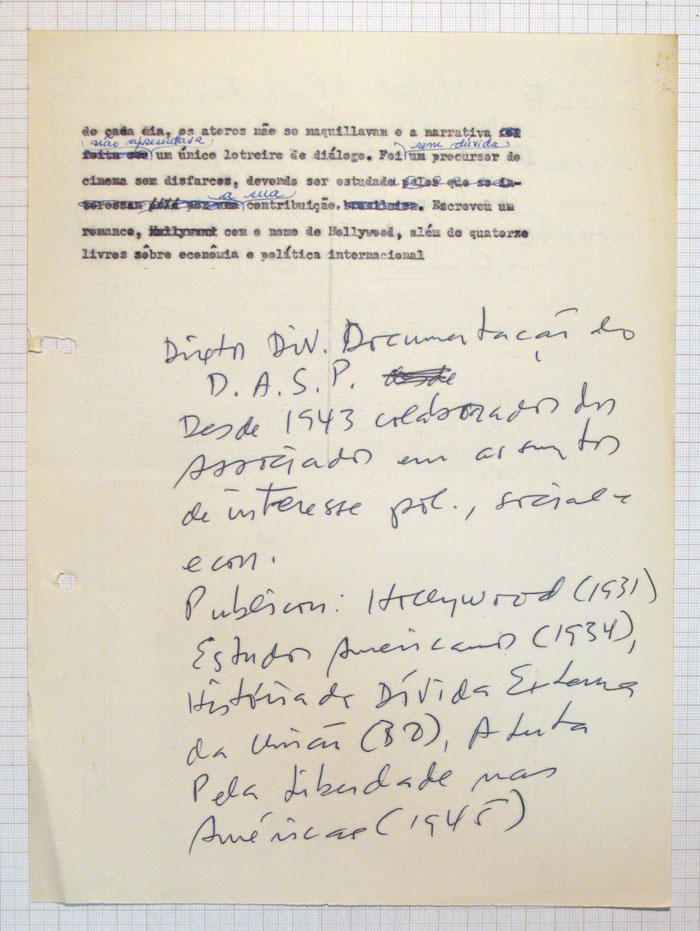 de cada dia, os atores não se maquillavam e a narrativa foi
não apresentava sem dúvida
feita sem um único letreiro de diálogo. Foi um precursor do
cinema sem disfarces, devendo ser estudado pelos que se in-
a sua
teressam por uma contribuição brasileira. Escreveu um
romance, Hollywood com o nome de Hollywood, além de quatorze
livros sôbre economia e política internacional
Diretor Div. Documentação do
D. A. S. P. desde
Desde 1943 colaborador dos
Associados em assuntos
de interesse pol., social e
econ.
Publicou: Hollywood (1931)
Estudos Americanos (1934),
História da Dívida Externa
da União (BD), A Luta
Pela Liberdade nas
Américas (1945)